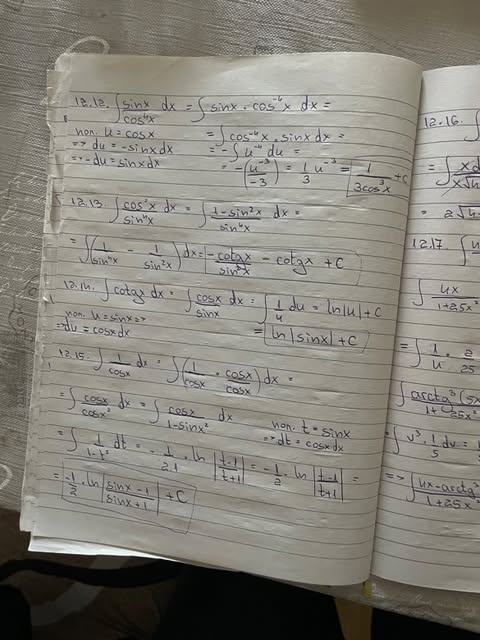 12.12. ∫ sinx/cos⁴x dx = ∫ sinx · cos⁻⁴x dx =
пол. u = cosx = ∫ cos⁻⁴x · sinx dx =
=> du = -sinxdx = -∫ u⁻⁴ du =
=> -du = sinxdx = -(u⁻³/-3) = 1/3 u⁻³ = 1/3cos³x + C
12.13 ∫ cos²x/sin⁴x dx = ∫ 1-sin²x/sin⁴x dx =
= ∫(1/sin⁴x - 1/sin²x) dx = -cotgx/sin²x - cotgx + C
12.14. ∫ cotgx dx = ∫ cosx/sinx dx = ∫ 1/u du = ln|u| + C
пол. u = sinx =>
=> du = cosxdx = ln|sinx| + C
12.15. ∫ 1/cosx dx = ∫(1/cosx · cosx/cosx) dx =
= ∫ cosx/cosx² dx = ∫ cosx/1-sinx² dx пол. t = sinx
=> dt = cosxdx
= ∫ 1/1-t² dt = -1/2.1 · ln |t-1/t+1| = -1/2 · ln |t-1/t+1| =
= -1/2 · ln |sinx-1/sinx+1| + C
12.16. ∫
= ∫
= 2√
12.17. ∫
∫ ux/1+25x²
= ∫ 1/u · 2/25
∫ arctg³(5x/1+25x²
= ∫ v³ · 1/5 dv = 1/5
=> ∫ ux-arctg³/1+25x²